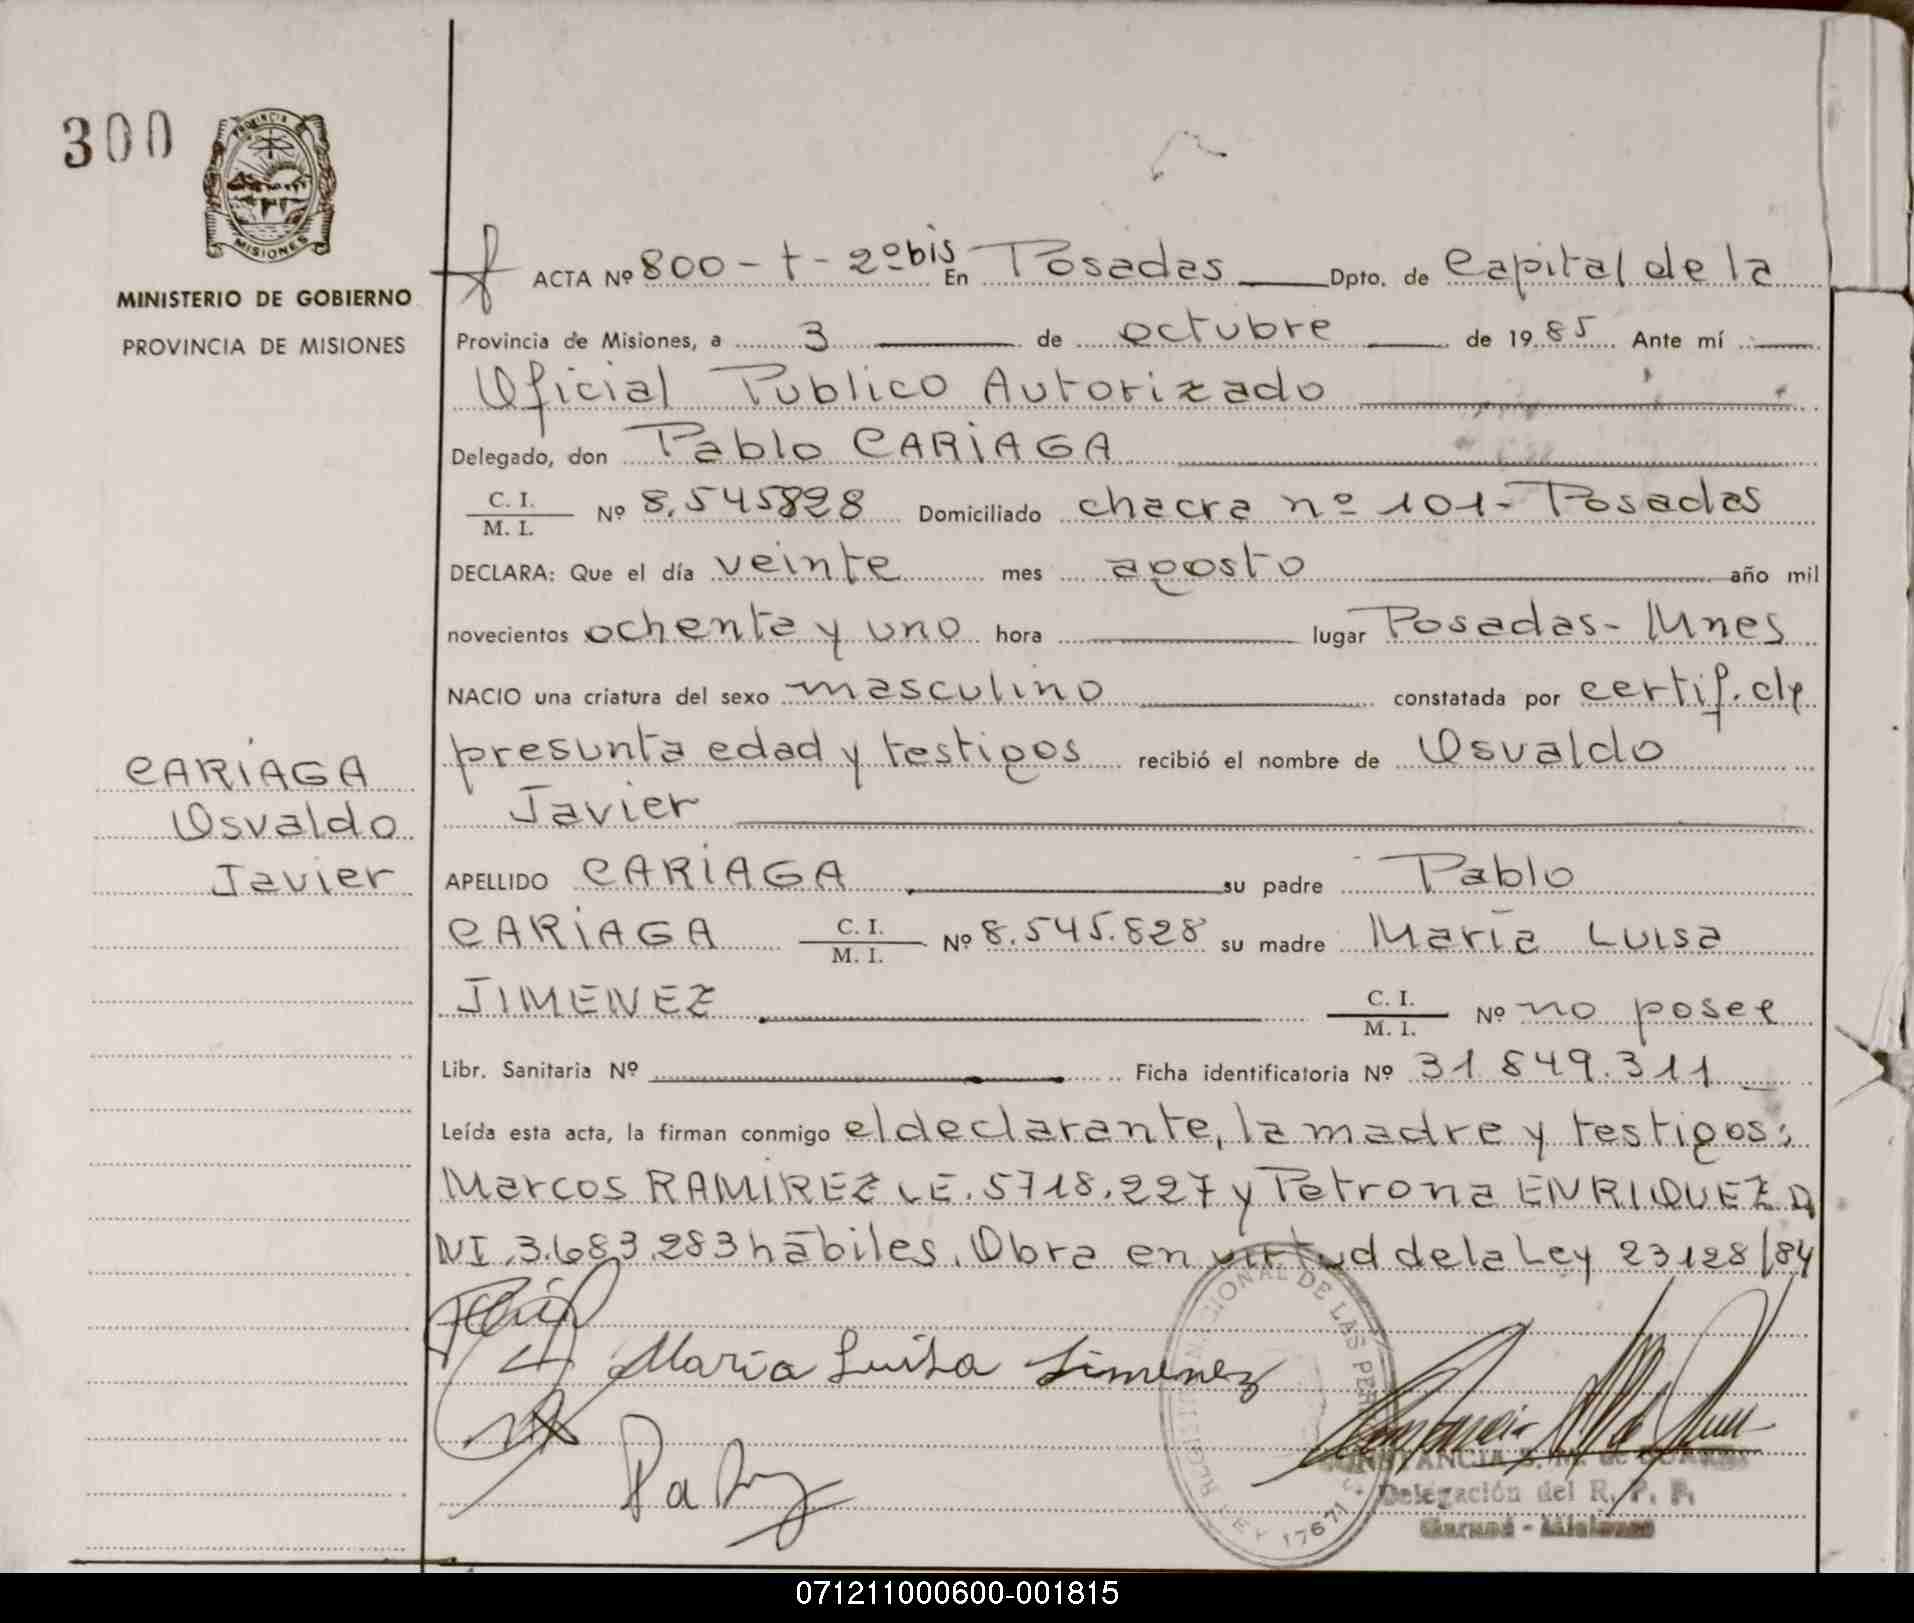 300
PROVINCIA
MISIONES
MINISTERIO DE GOBIERNO
PROVINCIA DE MISIONES
CARIAGA
Osvaldo
Javier
ACTA Nº 800 - t - 2º bis En Posadas Dpto. de Capital de la
Provincia de Misiones, a 3 de octubre de 1985 Ante mí
Oficial Publico Autorizado
Delegado, don Pablo CARIAGA
C. I.
M. I.
Nº 8.545828 Domiciliado chacra nº 101 - Posadas
DECLARA: Que el día veinte mes agosto año mil
novecientos ochenta y uno hora lugar Posadas - Mnes
NACIO una criatura del sexo masculino constatada por certif. de
presunta edad y testigos recibió el nombre de Osvaldo
Javier
APELLIDO CARIAGA su padre Pablo
CARIAGA C. I. M. I. Nº 8.545.828 su madre María Luisa
JIMENEZ C. I. M. I. Nº no posee
Libr. Sanitaria Nº Ficha identificatoria Nº 31.849.311
Leída esta acta, la firman conmigo el declarante, la madre y testigos:
Marcos RAMIREZ LE. 5718.227 y Petrona ENRIQUEZ D
NI. 3.683.283 hábiles. Obra en virtud de la Ley 23128/84
María Luisa Jimenez
DE LAS
LEY 17671
CONSTANCIA
Delegación del R. P. P.
Misiones
071211000600-001815